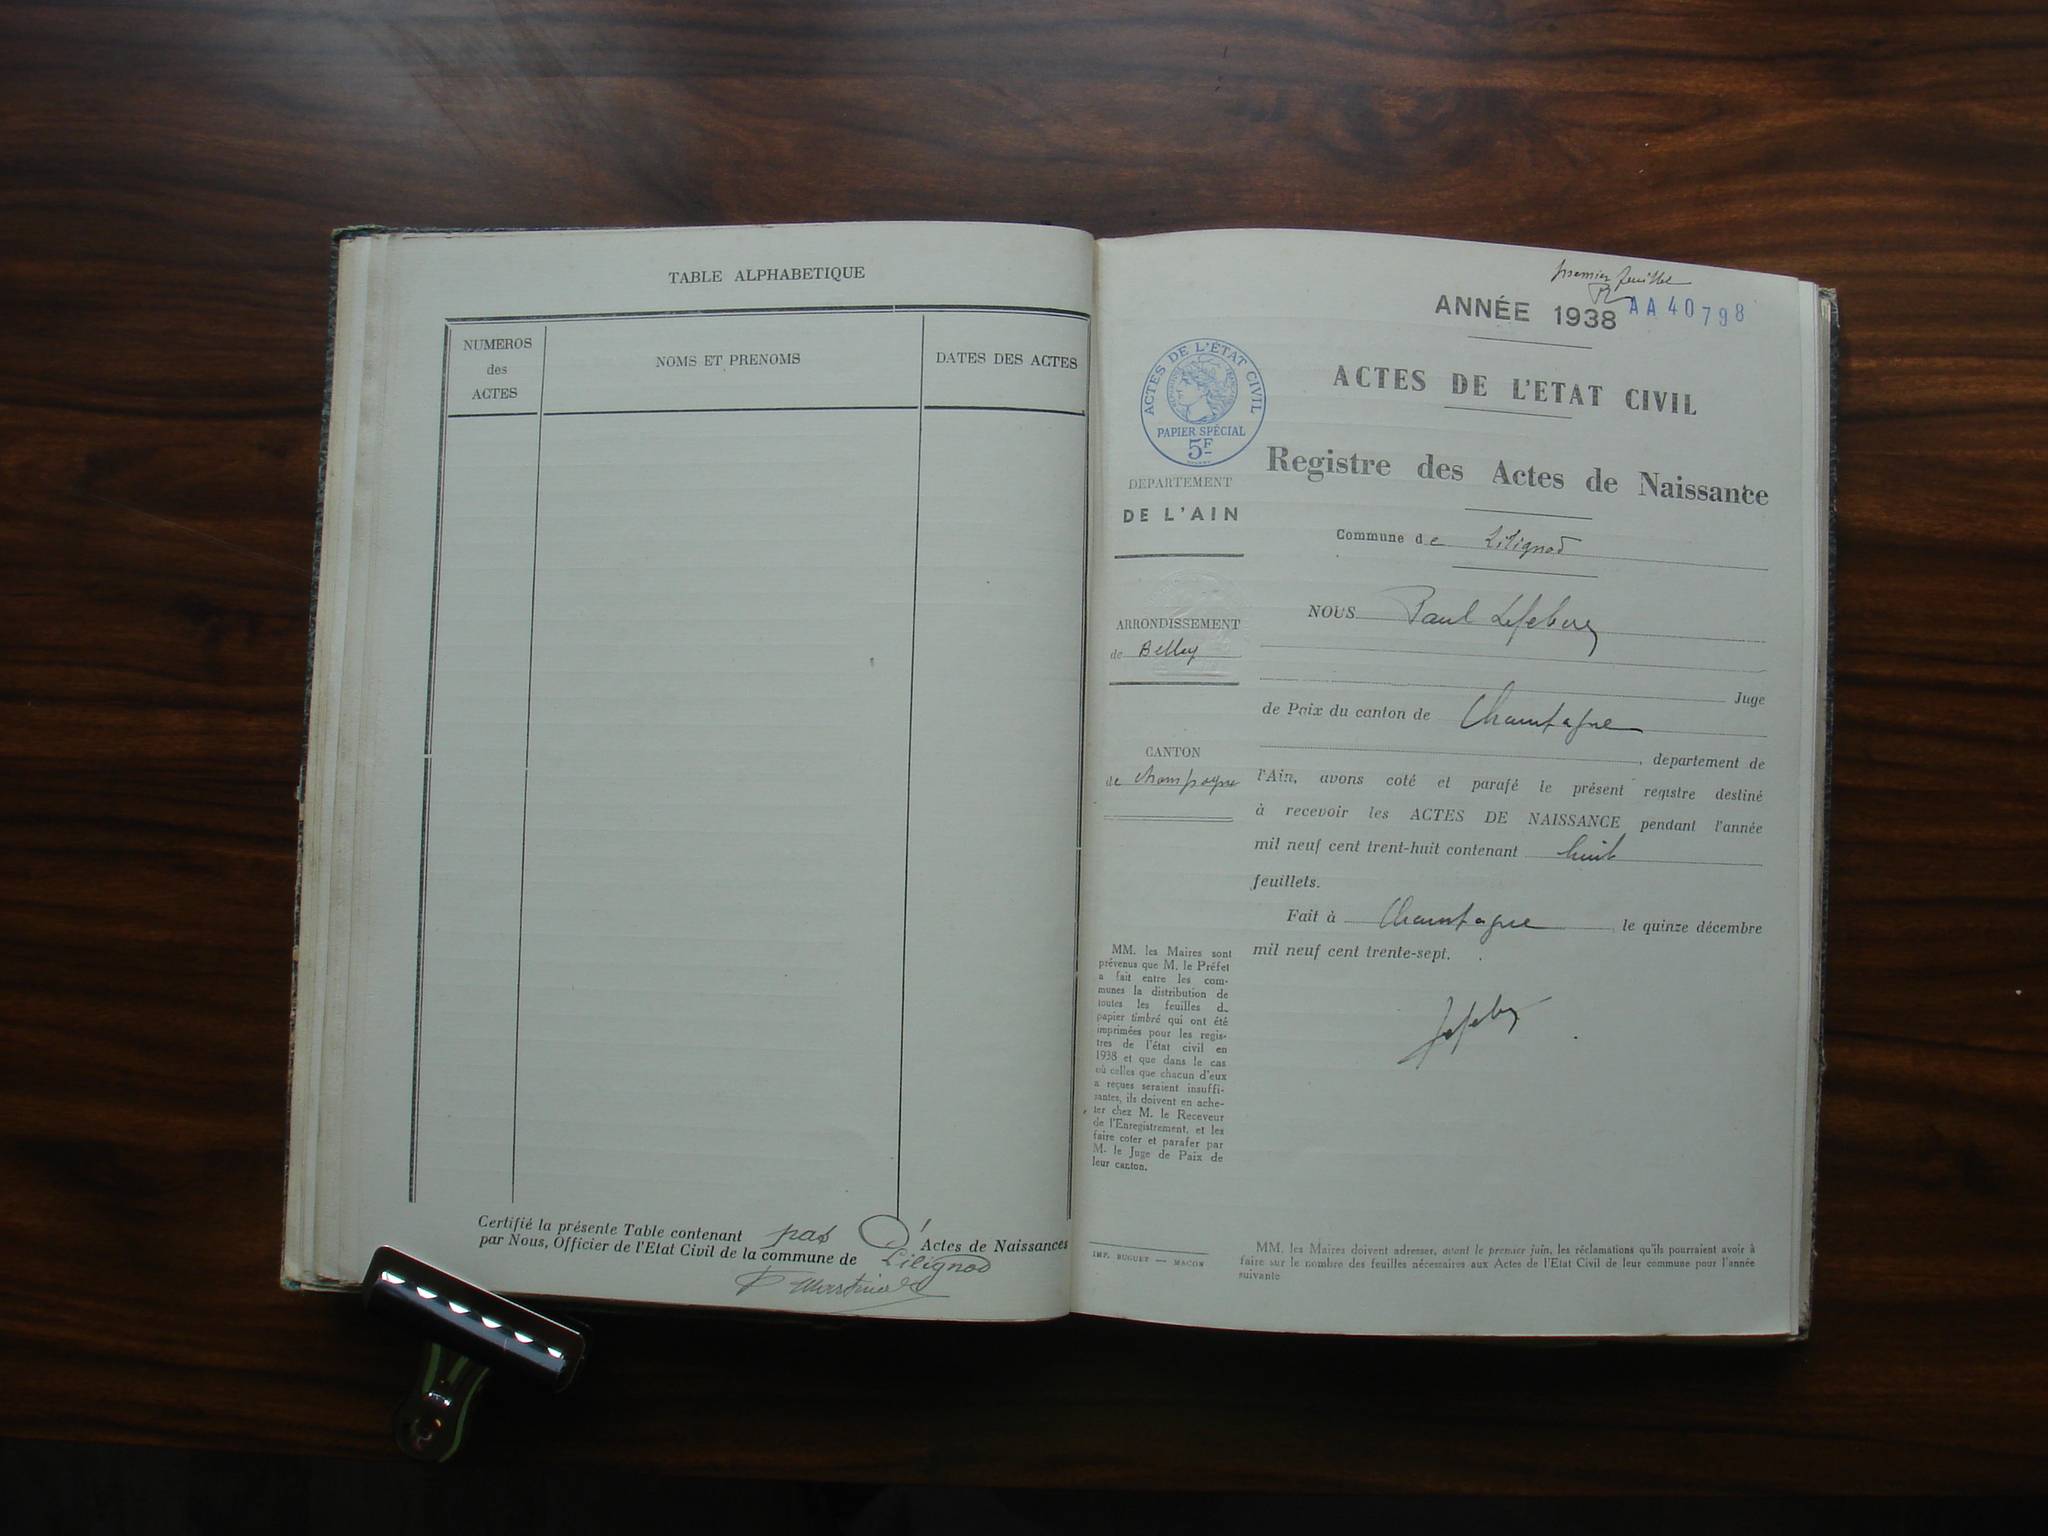 TABLE ALPHABETIQUE
NUMEROS
des
ACTES
NOMS ET PRENOMS
DATES DES ACTES
Certifié la présente Table contenant pas d' Actes de Naissances
par Nous, Officier de l'Etat Civil de la commune de Lilignod
premier feuillet
ANNÉE 1938
AA 40798
ACTES DE L'ÉTAT CIVIL
PAPIER SPÉCIAL
5F
ACTES DE L'ETAT CIVIL
Registre des Actes de Naissance
DEPARTEMENT
DE L'AIN
Commune de Lilignod
ARRONDISSEMENT
de Belley
CANTON
de Champagne
NOUS Paul Lefebvre
Juge
de Paix du canton de Champagne
, departement de
l'Ain, avons coté et parafé le présent registre destiné
à recevoir les ACTES DE NAISSANCE pendant l'année
mil neuf cent trent-huit contenant huit
feuillets.
Fait à Champagne, le quinze décembre
mil neuf cent trente-sept.
Lefebvre
MM. les Maires sont
prévenus que M. le Préfet
a fait entre les com-
munes la distribution de
toutes les feuilles d
papier timbré qui ont été
imprimées pour les regis-
tres de l'état civil en
1938 et que dans le cas
où celles que chacun d'eux
a reçues seraient insuffi-
santes, ils doivent en ache-
ter chez M. le Receveur
de l'Enregistrement, et les
faire coter et parafer par
M. le Juge de Paix de
leur canton.
IMP. BUGUET — MACON
MM. les Maires doivent adresser, avant le premier juin, les réclamations qu'ils pourraient avoir à
faire sur le nombre des feuilles nécessaires aux Actes de l'Etat Civil de leur commune pour l'année
suivante